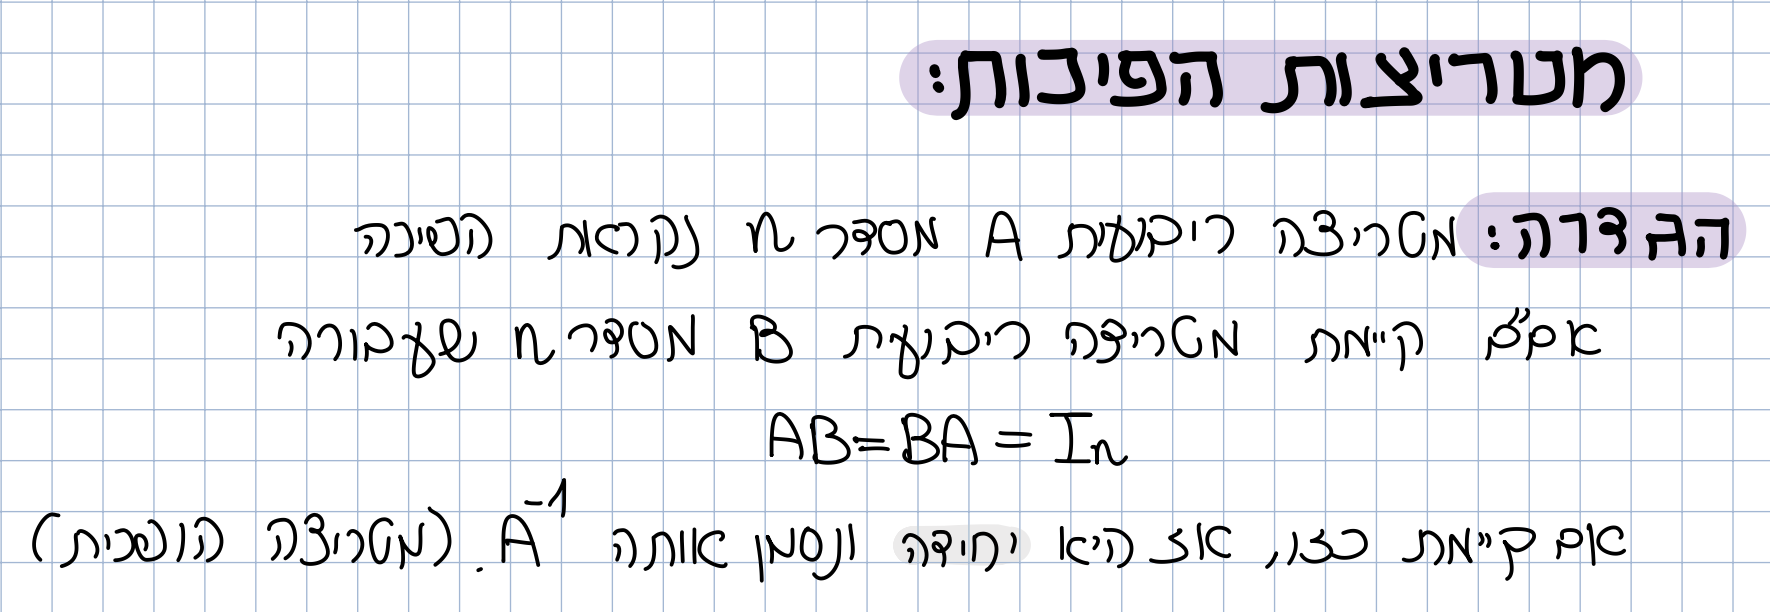 מטריצות הפיכות:
הגדרה: מטריצה ריבועית A מסדר n נקראת הפיכה
אם״ם קיימת מטריצה ריבועית B מסדר n שעבורה
AB=BA=In
אם קיימת כזו, אז היא יחידה ונסמן אותה A⁻¹. (מטריצה הופכית)